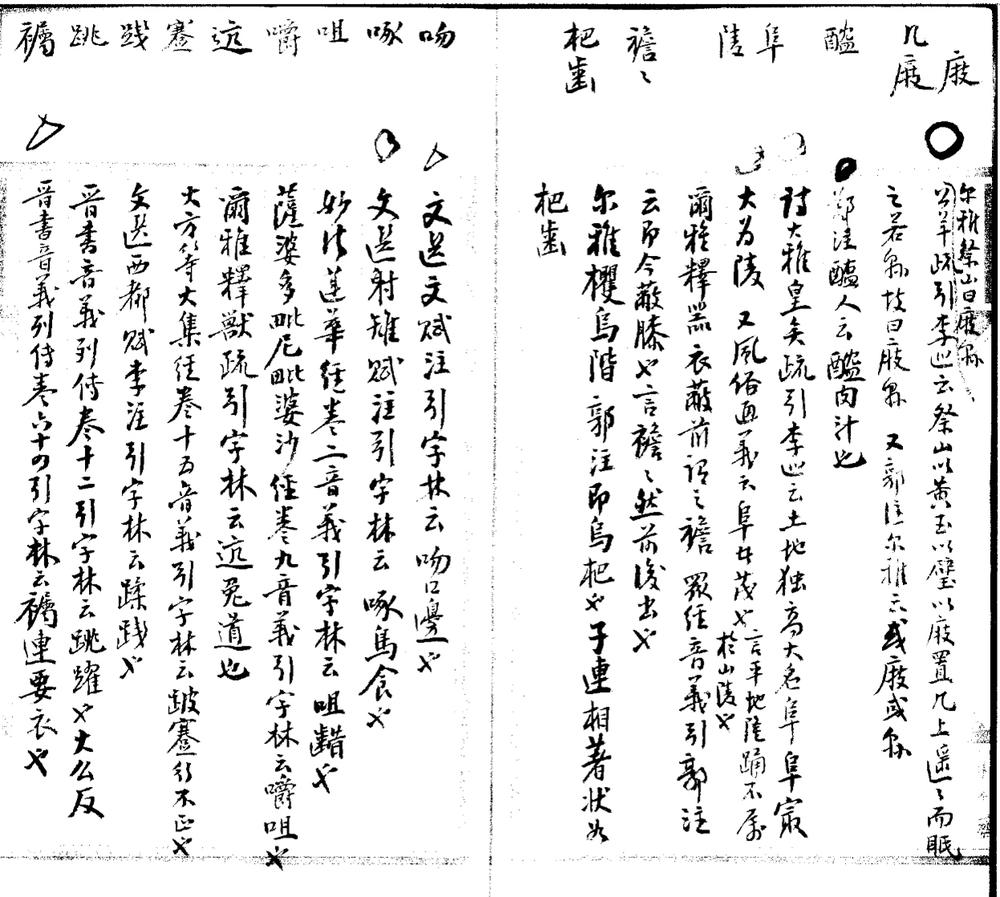 庪
几庪
醢
阜
陵
襜〻
杷齒
尔雅祭山曰庪縣
公羊疏引李巡云祭山以黄玉以璧以庪置几上遥〻而眠
之若縣故曰庪縣 又郭注尔雅云或庪或縣
鄭注醢人云醢肉汁也
詩大雅皇矣疏引李巡云土地独高大名阜阜冣
大为陵 又風俗通義云阜者茂也言平地隆踊不属
於山陵也
爾雅釋器衣蔽前謂之襜 眾经音義引郭注
云即今蔽膝也言襜〻然前後出也
尔雅欋烏階郭注即烏杷也子連相著状如
杷齒
吻
啄
咀
嚼
迒
蹇
践
跳
襡
文选文赋注引字林云吻口邊也
文选射雉赋注引字林云啄鳥食也
妙法蓮華经卷二音義引字林云咀齰也
薩婆多毗尼毗婆沙经卷九音義引字林云嚼咀也
爾雅釋獸疏引字林云迒兔道也
大方等大集经卷十五音義引字林云跛蹇行不正也
文选西都赋李注引字林云蹂践也
晋書音義列傳卷十二引字林云跳躍也大么反
晋書音義列传卷六十四引字林云襡連要衣也